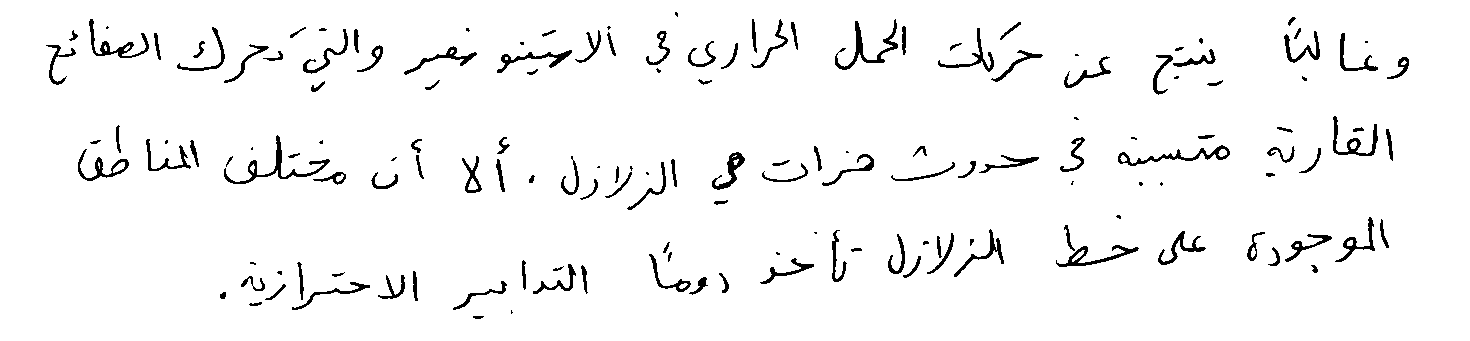 وغالبًا ينتج عن حركات الحمل الحراري في الاستينوسفير والتي تحرك الصفائح
القارية متسببة في حدوث هزات هي الزلازل. ألا أن مختلف المناطق
الموجودة على خط الزلازل تأخذ دومًا التدابير الاحترازية.